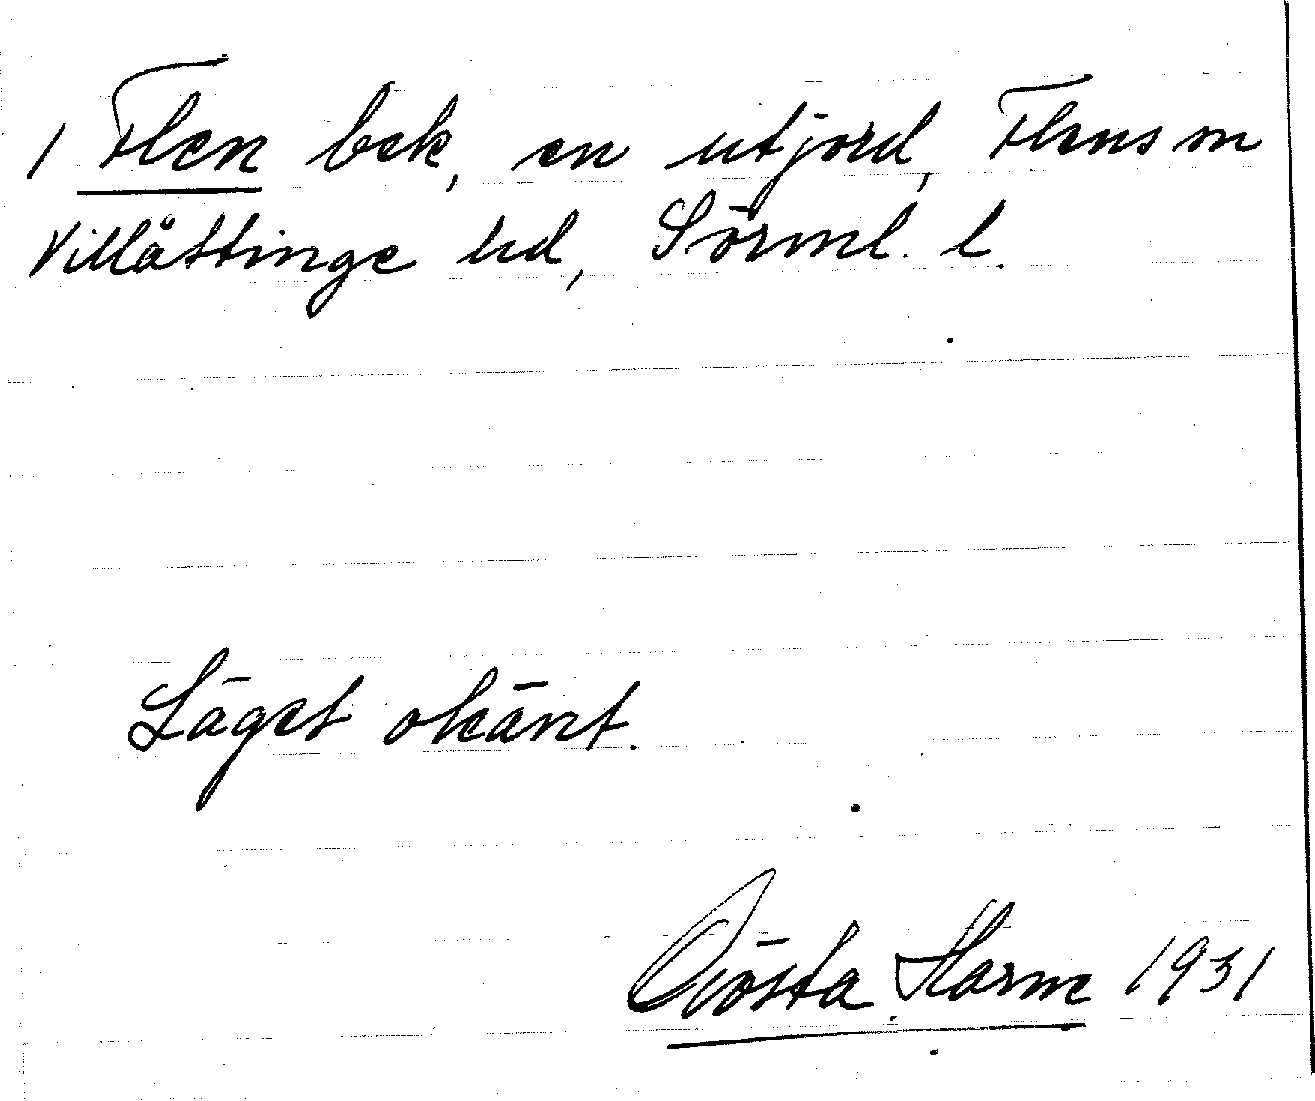 1 Flen bek, en utjord, Flens sn
Villåttinge hd, Sörml. l.
Läget okänt.
Gösta Harme 1931